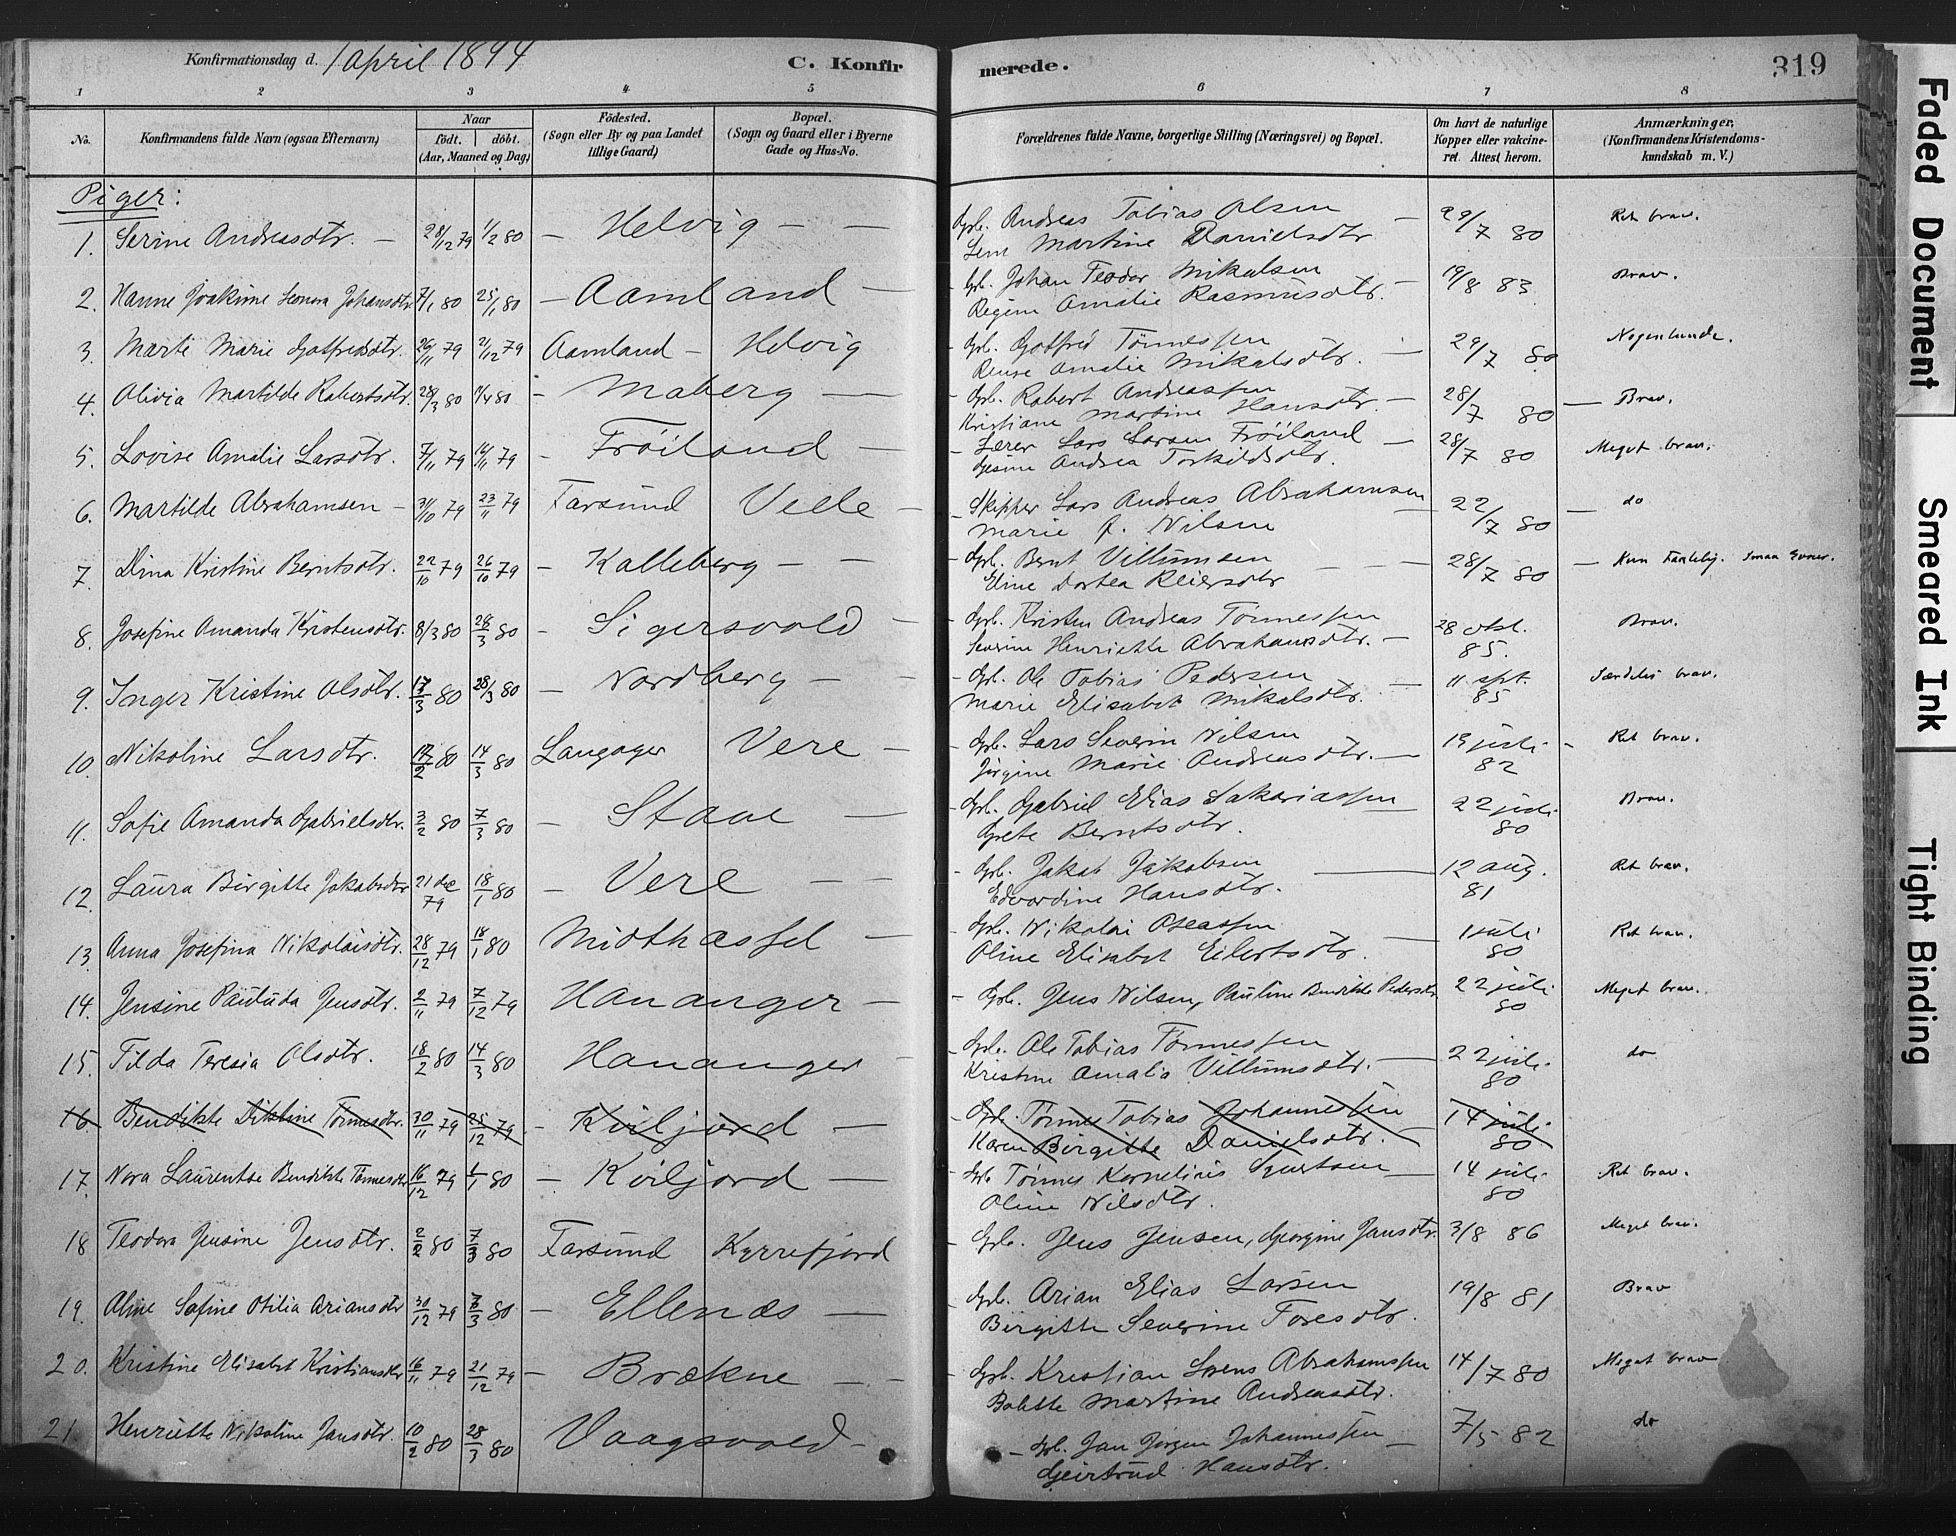 Konfirmationsdag d. 1 April 1894
C. Konfirmerede.
319
1 2 3 4 5 6 7 8
No.
Konfirmandens fulde Navn (ogsaa Efternavn)
Naar
født. døbt.
(Aar, Maaned og Dag)
Fødested.
(Sogn eller By og paa Landet
tillige Gaard)
Bopæl.
(Sogn og Gaard eller i Byerne
Gade og Hus-No.
Forældrenes fulde Navne, borgerlige Stilling (Næringsvei) og Bopæl.
Om havt de naturlige
Kopper eller vakcine-
ret. Attest herom.
Anmærkninger,
(Konfirmandens Kristendoms-
kundskab m. V.)
Piger:
1. Serine Andreasdtr. — 28/12 79 1/2 80 — Helvig — — Gbr. Andreas Tobias Olsen — 29/7 80 Ret brav.
Martine Danielsdtr.
2. Hanne Joakime Leonora Johansdtr. 7/1 80 25/1 80 — Aamland — Gbr. Johan Teodor Mikalsen — 19/8 83. Brav.
Regine Amalie Rasmusdtr.
3. Marti Marie Gotfredsdtr. 26/11 79 21/12 79 Aamland — Helvig Gbr. Gotfred Tønnessen — 29/7 80 Nogenlunde.
Amalie Mikalsdtr.
4. Olivia Martilde Robertsdtr. 28/3 80 80 — Maberg — Gbr. Robert Andreassen — 28/7 80 — Brav.
Kristiane Martine Hansdtr.
5. Lovise Amalie Larsdtr. 7/11 79 16/11 79 — Frøiland — Lærer Lars Larsen Frøiland — 28/7 80 Meget brav.
Gesine Andrea Torkildsdtr.
6. Martilde Abrahamsen — 31/10 79 23/11 79 Farsund Velle — Skipper Lars Andreas Abrahamsen 22/7 80 — do
Marie Nilsen
7. Dina Kristine Berntsdtr. 22/10 79 26/10 79 — Kalleberg — — Gbr. Bernt Villumsen 28/7 80 — Kun Smaa Evner.
Eline Dortea Reiersdtr
8. Josefine Amanda Kristensdtr. 8/3 80 28/3 80 — Sigersvold — Gbr. Kristen Andreas Tønnessen 28 okt. 85. Brav.
Severine Henriette Abrahamsdtr. —
9. Inger Kristine Olsdtr. 17/3 80 28/3 80 — Nordberg — — Gbr. Ole Tobias Pedersen — 11 spt. 85 Særdeles brav.
Marie Elisabet Mikalsdtr.
10. Nikoline Larsdtr. 12/2 80 14/3 80 Langager Vere — Gbr. Lars Severin Nilsen 19 juli 82 — Ret brav.
Jørgine Marie Andreasdtr. —
11. Sofie Amanda Gabrielsdtr. 3/2 80 7/3 80 — Staae — Gbr. Gabriel Elias Sakariassen 22 juli 80 Brav.
Grete Berntsdtr.
12. Laura Birgitte Jakobsdtr 21 dec 79 18/1 80 — Vere — — Gbr. Jakob Jakobsen — 12 aug. 81 Ret brav.
Edvardine Hansdtr.
13. Anna Josefina Nikolaisdtr. 28/12 79 18/1 80 Midthassel — Gbr. Nikolai Oseassen — 1 juli 80 Ret brav.
Oline Elisabet Eilertsdtr.
14. Jensine Jensdtr. 2/11 79 7/12 79 Hananger — Gbr. Jens Nilsen, Pauline Bendikte Pedersdtr 22 juli 80 Meget brav.
15. Tilda Teresia Olsdtr. 18/2 80 14/3 80 Hananger — Gbr. Ole Tobias Tønnessen — 22 juli 80 do
Kristine Amalia Villumsdtr.
16 Bendikte Tønnesdtr. 30/11 79 25/12 79 — Kviljord — Gbr. Tønnes Tobias Johannessen 14 juli 80
Karen Birgitte Danielsdtr.
17. Nora Laurentse Bendikte Tønnesdtr. 16/12 79 1/1 80 — Kviljord — Gbr Tønnes Kornelius Sjurtsen — 14 juli 80 Ret brav.
Oline Nilsdtr.
18 Teodora Jensine Jensdtr. 2/2 80 7/3 80 Farsund Kyrrefjord Gbr. Jens Jensen, Georgine Jansdtr. 3/8 86 Meget brav.
19. Aline Sofine Otilia Ariansdtr 30/12 79 7/3 80 — Ellenæs — Gbr. Arian Elias Larsen 19/8 81 Brav
Birgitte Severine Toresdtr.
20. Kristine Elisabet Kristiansdtr 16/11 79 21/12 79 — Brækne — — Gbr. Kristian Sørens Abrahamssen 14/7 80 Meget brav
Bolette Martine Andreasdtr.
21 Henriette Nikoline Jansdtr. 10/2 80 28/3 80 Vaagsvold — — Gbr. Jan Jørgen Johannessen — 7/5 82 do
Gjertrud Hansdtr.
Faded Document
Smeared Ink
Tight Binding